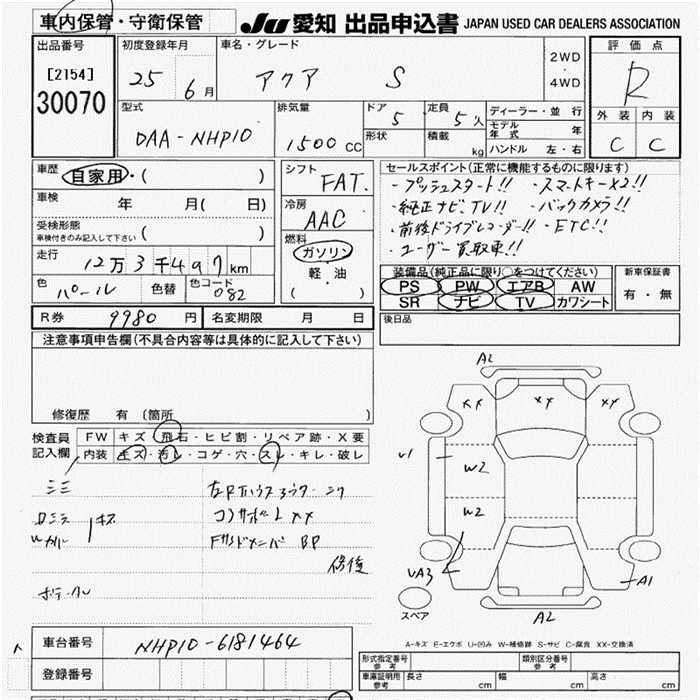 車内保管・守衛保管
JU 愛知 出品申込書 JAPAN USED CAR DEALERS ASSOCIATION
出品番号
[2154]
30070
初度登録年月
25 6月
車名・グレード
アクア S
2WD
・
4WD
評価点
R
外装 内装
C C
型式
DAA-NHP10
排気量
1500 CC
ドア 5
形状
定員 5人
積載 kg
ディーラー・並行
モデル年式 年
ハンドル 左・右
車歴
自家用・( )
車検 年 月( 日)
受検形態
車検付きのみ記入して下さい ( )
走行
12万3千497km
色 パール 色替 色コード 082
シフト
FAT.
冷房
AAC
燃料
ガソリン
軽・油
( )
セールスポイント(正常に機能するものに限ります)
・プッシュスタート!! ・スマートキーX2!!
・純正ナビ、TV!! ・バックカメラ!!
・前後ドライブレコーダー!! ・ETC!!
・ユーザー買取車!!
装備品(純正品に限り○をつけてください)
PS PW エアB AW
SR ナビ TV カワシート
新車保証書
有・無
R券 9980円 名変期限 月 日
後日品
注意事項申告欄(不具合内容等は具体的に記入して下さい)
修復歴 有 (箇所 )
検査員
記入欄
FW キズ・飛石・ヒビ割・リペア跡・X要
内装 キズ・汚レ・コゲ・穴・スレ・キレ・破レ
コンサポートXX
BP
修復
A2
XX XX XX
U1
W2
W2
UA3
A1
A2
スペア
A-キズ E-エクボ U-凹み W-補修跡 S-サビ C-腐食 XX-交換済
車台番号 NHP10-6181464
登録番号
形式指定番号
参考
類別区分番号
参考
車庫証明用
参考
長さ cm 幅 cm 高さ cm